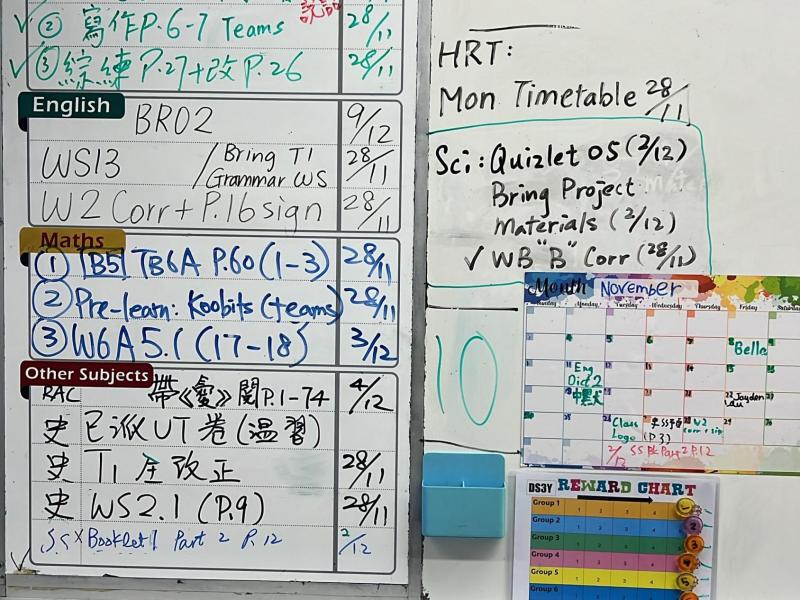 ② 寫作P.6-7 Teams 28/11
③ 綜練 P.27+改P.26 28/11
English
BR02 9/12
WS13 / Bring T1 Grammar WS 28/11
W2 Corr + P.16 sign 28/11
Maths
① [B5] TB6A P.60 (1-3) 28/11
② Pre-learn: Koobits (teams) 28/11
③ W6A 5.1 (17-18) 3/12
Other Subjects
RAC 帶《愛》閱P.1-74 4/12
史 已派UT卷(温習)
史 T1 全改正 28/11
史 WS2.1 (P.9) 28/11
S.S × Booklet 1 Part 2 P.12 2/12
HRT:
Mon Timetable 28/11
Sci: Quizlet 05 (2/12)
Bring Project
materials (2/12)
✓ WB "B" Corr (28/11)
10
Month November
Sunday Monday Tuesday Wednesday Thursday Friday Saturday
Bella
Eng
Dict 2
中黑犬
Jayden
Lau
Class
Logo
(P.3)
W2
corr + sign
2/12 SS Bk Part 2 P.12
DS3Y REWARD CHART
Group 1 1 2 3 4
Group 2 1 2 3 4
Group 3 1 2 3 4
Group 4 1 2 3 4
Group 5 1 2 3 4
Group 6